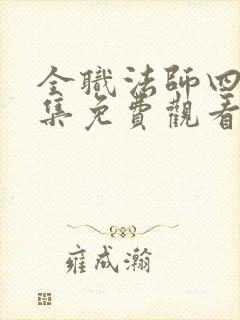 全職法師四
集免費觀看
雍成瀚